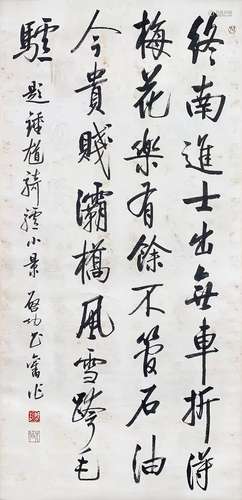 終南進士出無車折得
梅花樂有餘不管石油
今貴賤灞橋風雪跨毛
驢 題鍾馗騎驢小景 啟功書舊作